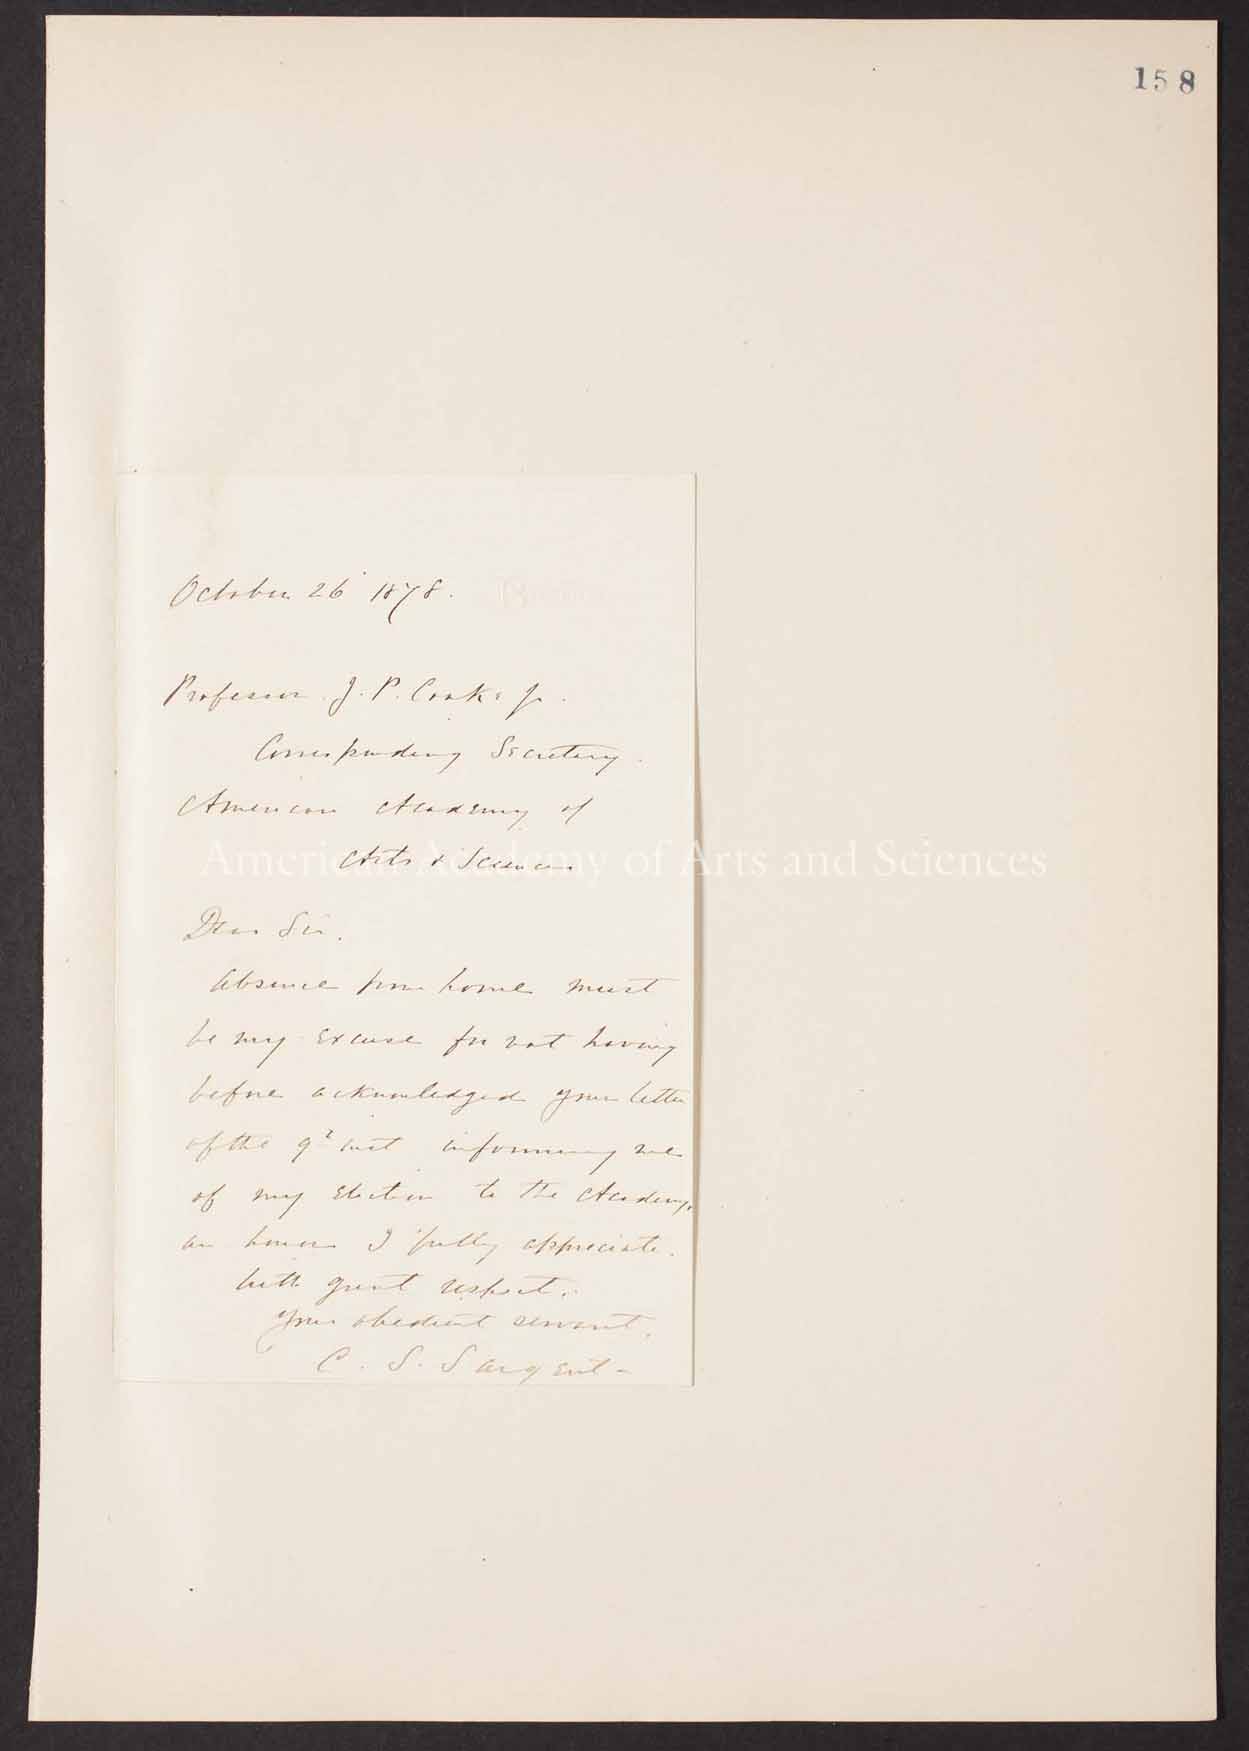 158
October 26 1878.
Professor J. P. Cooke Jr.
Corresponding Secretary
American Academy of
Arts & Sciences
American Academy of Arts and Sciences
Dear Sir.
Absence from home must
be my excuse for not having
before acknowledged your letter
of the 9th inst informing me
of my election to the Academy,
an honor I fully appreciate.
With great respect.
Your obedient servant,
C. S. Sargent-